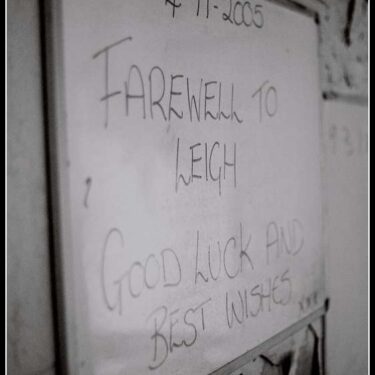 4-11-2005
FAREWELL TO
LEIGH
GOOD LUCK AND
BEST WISHES
xxx